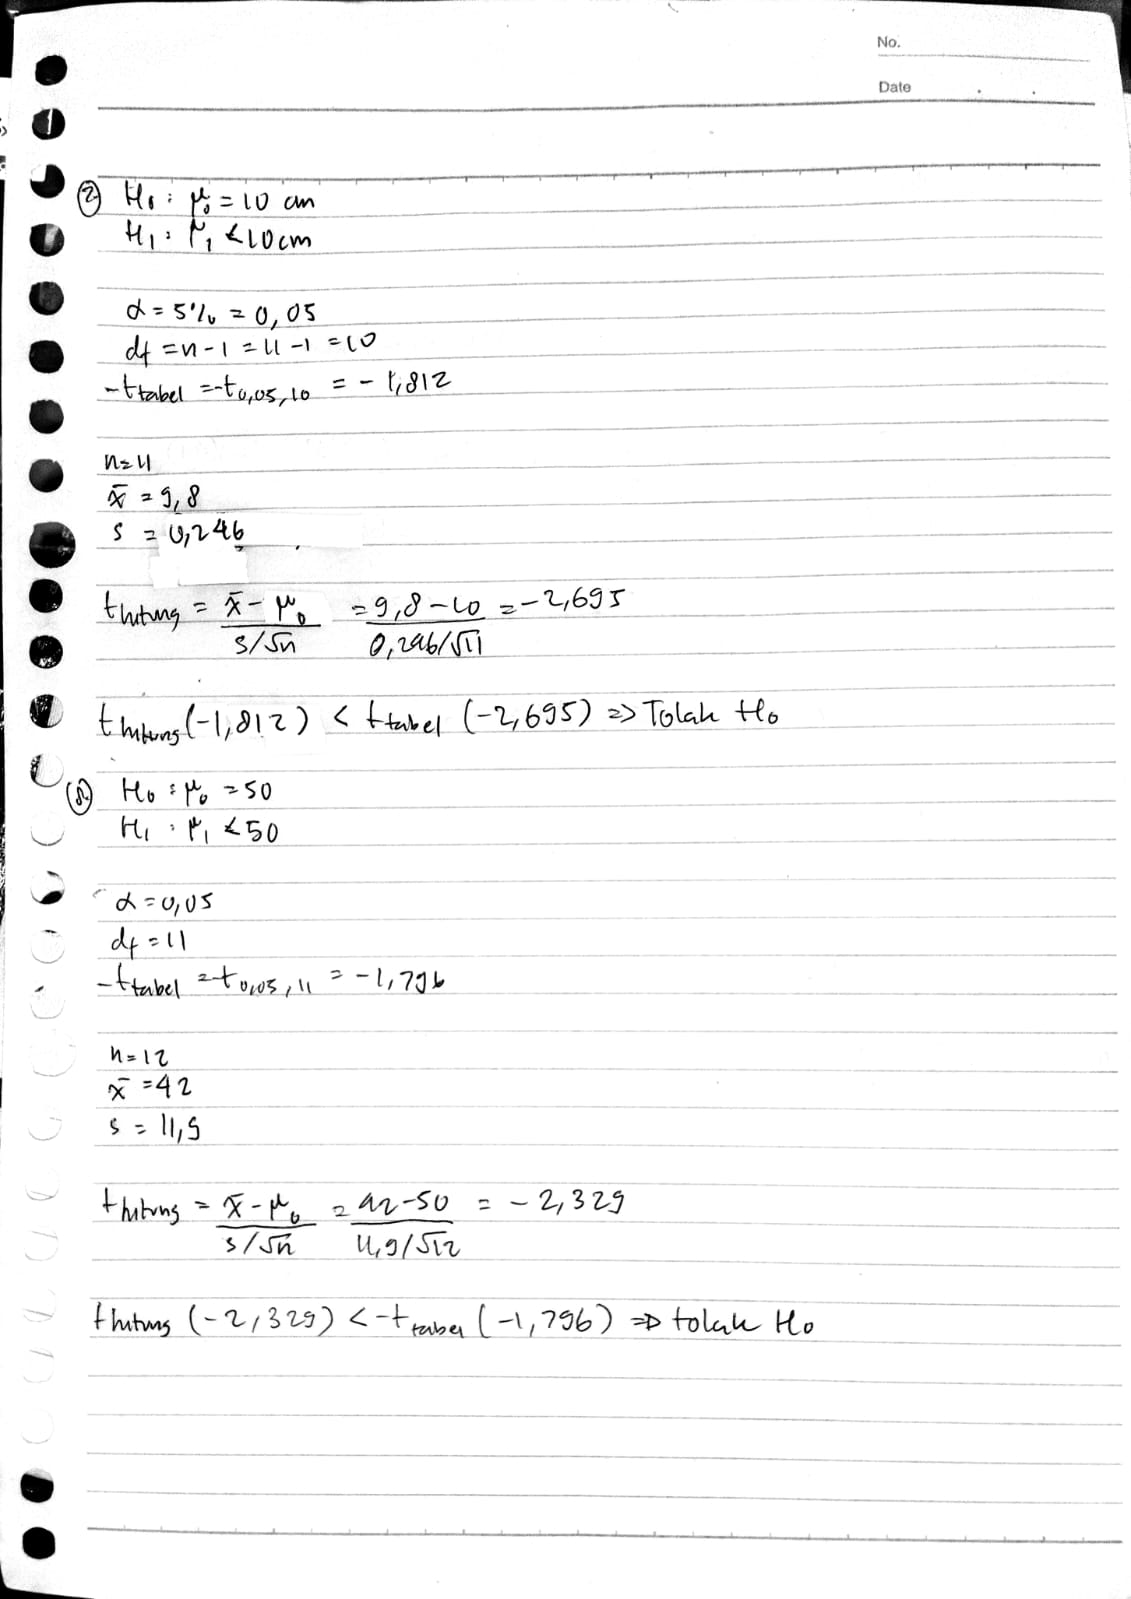 No.
Date
② H₀ : μ₀ = 10 cm
H₁ : μ₁ < 10 cm
α = 5% = 0,05
df = n - 1 = 11 - 1 = 10
-t tabel = -t 0,05, 10 = - 1,812
n = 11
x̄ = 9,8
s = 0,246
t hitung = x̄ - μ₀ / s/√n = 9,8 - 10 / 0,246/√11 = -2,695
t hitung (-1,812) < t tabel (-2,695) => Tolak H₀
⑧ H₀ : μ₀ = 50
H₁ : μ₁ < 50
α = 0,05
df = 11
-t tabel = t 0,05, 11 = -1,796
n = 12
x̄ = 42
s = 11,9
t hitung = x̄ - μ₀ / s/√n = 42 - 50 / 11,9/√12 = - 2,329
t hitung (-2,329) < -t tabel (-1,796) => tolak H₀